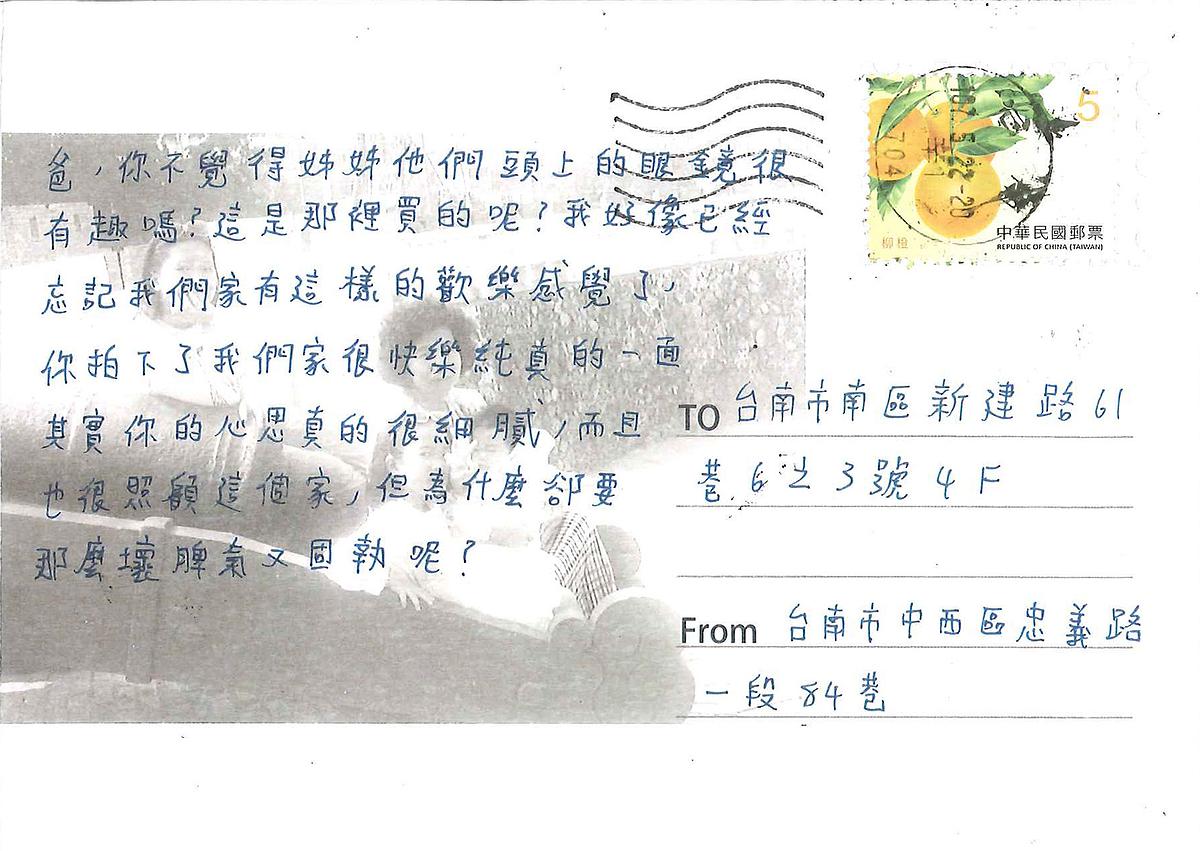 爸，你不覺得姊姊他們頭上的眼鏡很
有趣嗎？這是那裡買的呢？我好像已經
忘記我們家有這樣的歡樂感覺了，
你拍下了我們家很快樂純真的一面
其實你的心思真的很細膩，而且
也很照顧這個家，但為什麼卻要
那麼壞脾氣又固執呢？
5
704
柳橙
中華民國郵票
REPUBLIC OF CHINA (TAIWAN)
TO 台南市南區新建路61
巷6之3號4F
From 台南市中西區忠義路
一段84巷